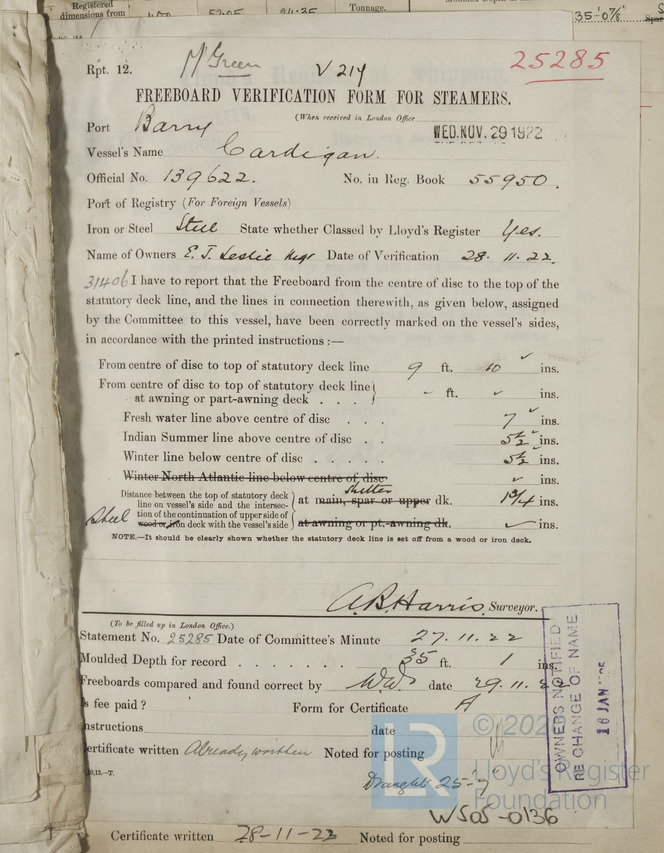 Registered
dimensions from
Tonnage.
35'-0⅞"
Rpt. 12.
McGreen
V 214
25285
FREEBOARD VERIFICATION FORM FOR STEAMERS.
(When received in London Office
WED. NOV. 29 1922
Port Barry
Vessel's Name Cardigan.
Official No. 139622. No. in Reg. Book 55950.
Port of Registry (For Foreign Vessels)
Iron or Steel Steel State whether Classed by Lloyd's Register Yes.
Name of Owners E. T. Leslie Mgr Date of Verification 28. 11. 22.
31406 I have to report that the Freeboard from the centre of disc to the top of the
statutory deck line, and the lines in connection therewith, as given below, assigned
by the Committee to this vessel, have been correctly marked on the vessel's sides,
in accordance with the printed instructions :—
From centre of disc to top of statutory deck line 9 ft. 10 ✓ ins.
From centre of disc to top of statutory deck line
at awning or part-awning deck . . . - ft. ✓ ins.
Fresh water line above centre of disc . . . 7 ✓ ins.
Indian Summer line above centre of disc . . 5½ ✓ ins.
Winter line below centre of disc . . . . . 5½ ✓ ins.
Winter North Atlantic line below centre of disc ✓ ins.
Shelter
Distance between the top of statutory deck
line on vessel's side and the intersec-
tion of the continuation of upper side of
wood or iron deck with the vessel's side
Steel
at main, spar or upper dk. 1¾ ins.
at awning or pt.-awning dk. ✓ ins.
NOTE.—It should be clearly shown whether the statutory deck line is set off from a wood or iron deck.
A.B. Harris. Surveyor.
(To be filled up in London Office.)
Statement No. 25285 Date of Committee's Minute 27. 11. 22
Moulded Depth for record . . . . . . . 35 ft. 1 ins.
Freeboards compared and found correct by date 29. 11. 22
s fee paid ? Form for Certificate A
nstructions date
ertificate written Already written Noted for posting
,10,13.—T.
Draught 25'-7
OWNERS NOTIFIED
RE CHANGE OF NAME
16 JAN
LR
© 202
Lloyd's Register
Foundation
W505-0136
Certificate written 28-11-22 Noted for posting